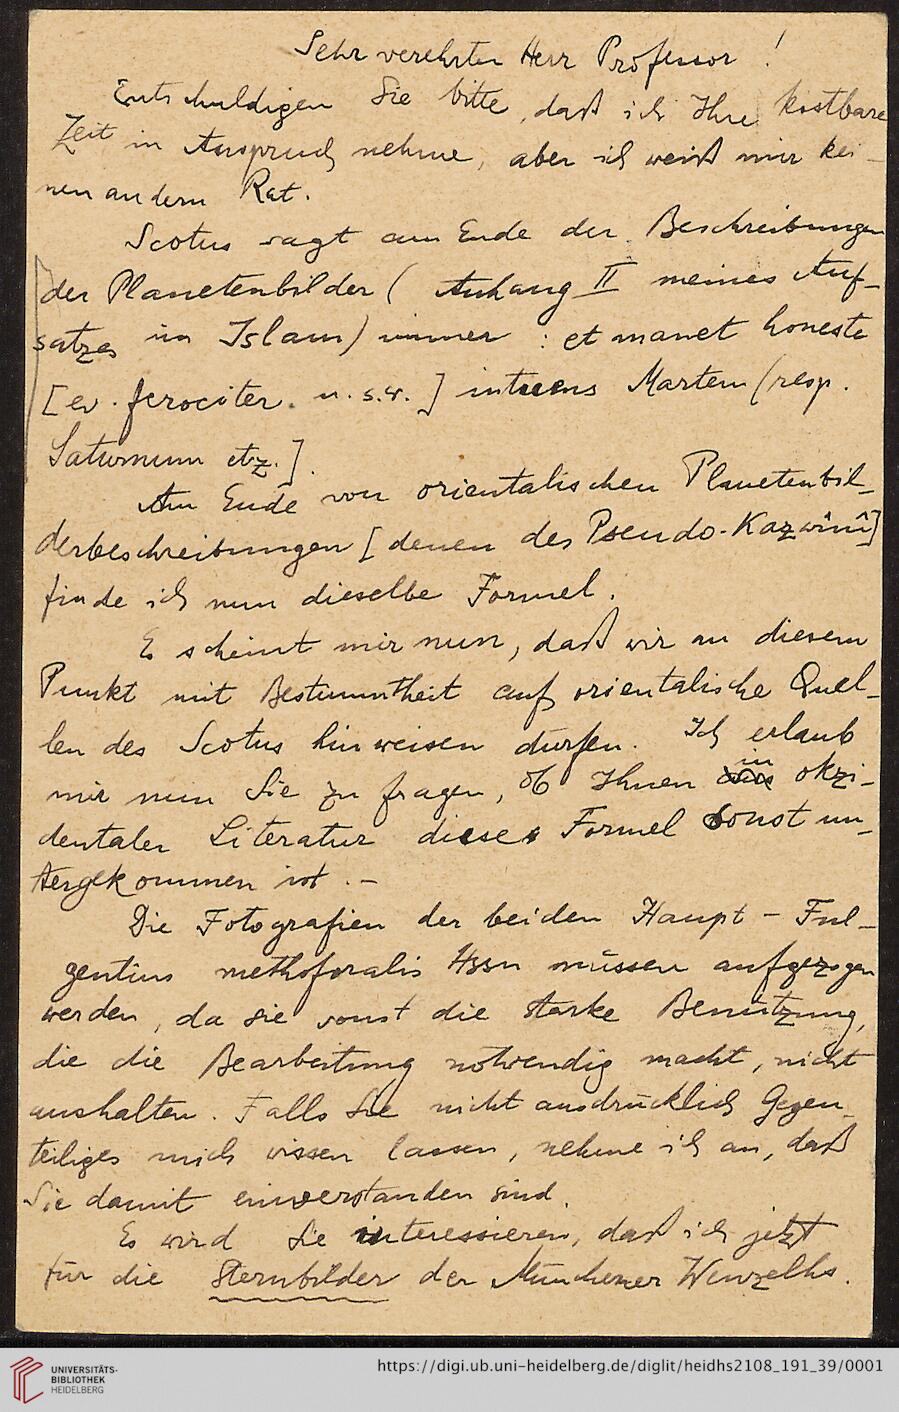 Sehr verehrter Herr Professor!
Entschuldigen Sie bitte, daß ich Ihre kostbare
Zeit in Anspruch nehme, aber ich weiß mir kei-
nen andern Rat.
Scotus sagt am Ende der Beschreibungen
der Planetenbilder (Anhang II meines Auf-
satzes im Islam) immer: et manet honeste
[ev. ferociter u.s.w.] intuens Martem (resp.
Saturnum etz.].
Am Ende von orientalischen Planetenbil-
derbeschreibungen [denen des Pseudo-Kazwînî]
finde ich nun dieselbe Formel.
Es scheint mir nun, daß wir an diesem
Punkt mit Bestimmtheit auf orientalische Quel-
len des Scotus hinweisen dürfen. Ich erlaub
mir nun Sie zu fragen, ob Ihnen in okzi-
dentaler Literatur diese Formel sonst un-
tergekommen ist. –
Die Fotografien der beiden Haupt-Ful-
gentius methoforalis Hssn müssen aufgezogen
werden, da sie sonst die starke Benützung,
die die Bearbeitung notwendig macht, nicht
aushalten. Falls Sie nicht ausdrücklich Gegen-
teiliges mich wissen lassen, nehme ich an, daß
Sie damit einverstanden sind.
Es wird Sie interessieren, daß ich jetzt
für die Sternbilder der Münchener Wenzelhs.
UNIVERSITÄTS-
BIBLIOTHEK
HEIDELBERG
https://digi.ub.uni-heidelberg.de/diglit/heidhs2108_191_39/0001